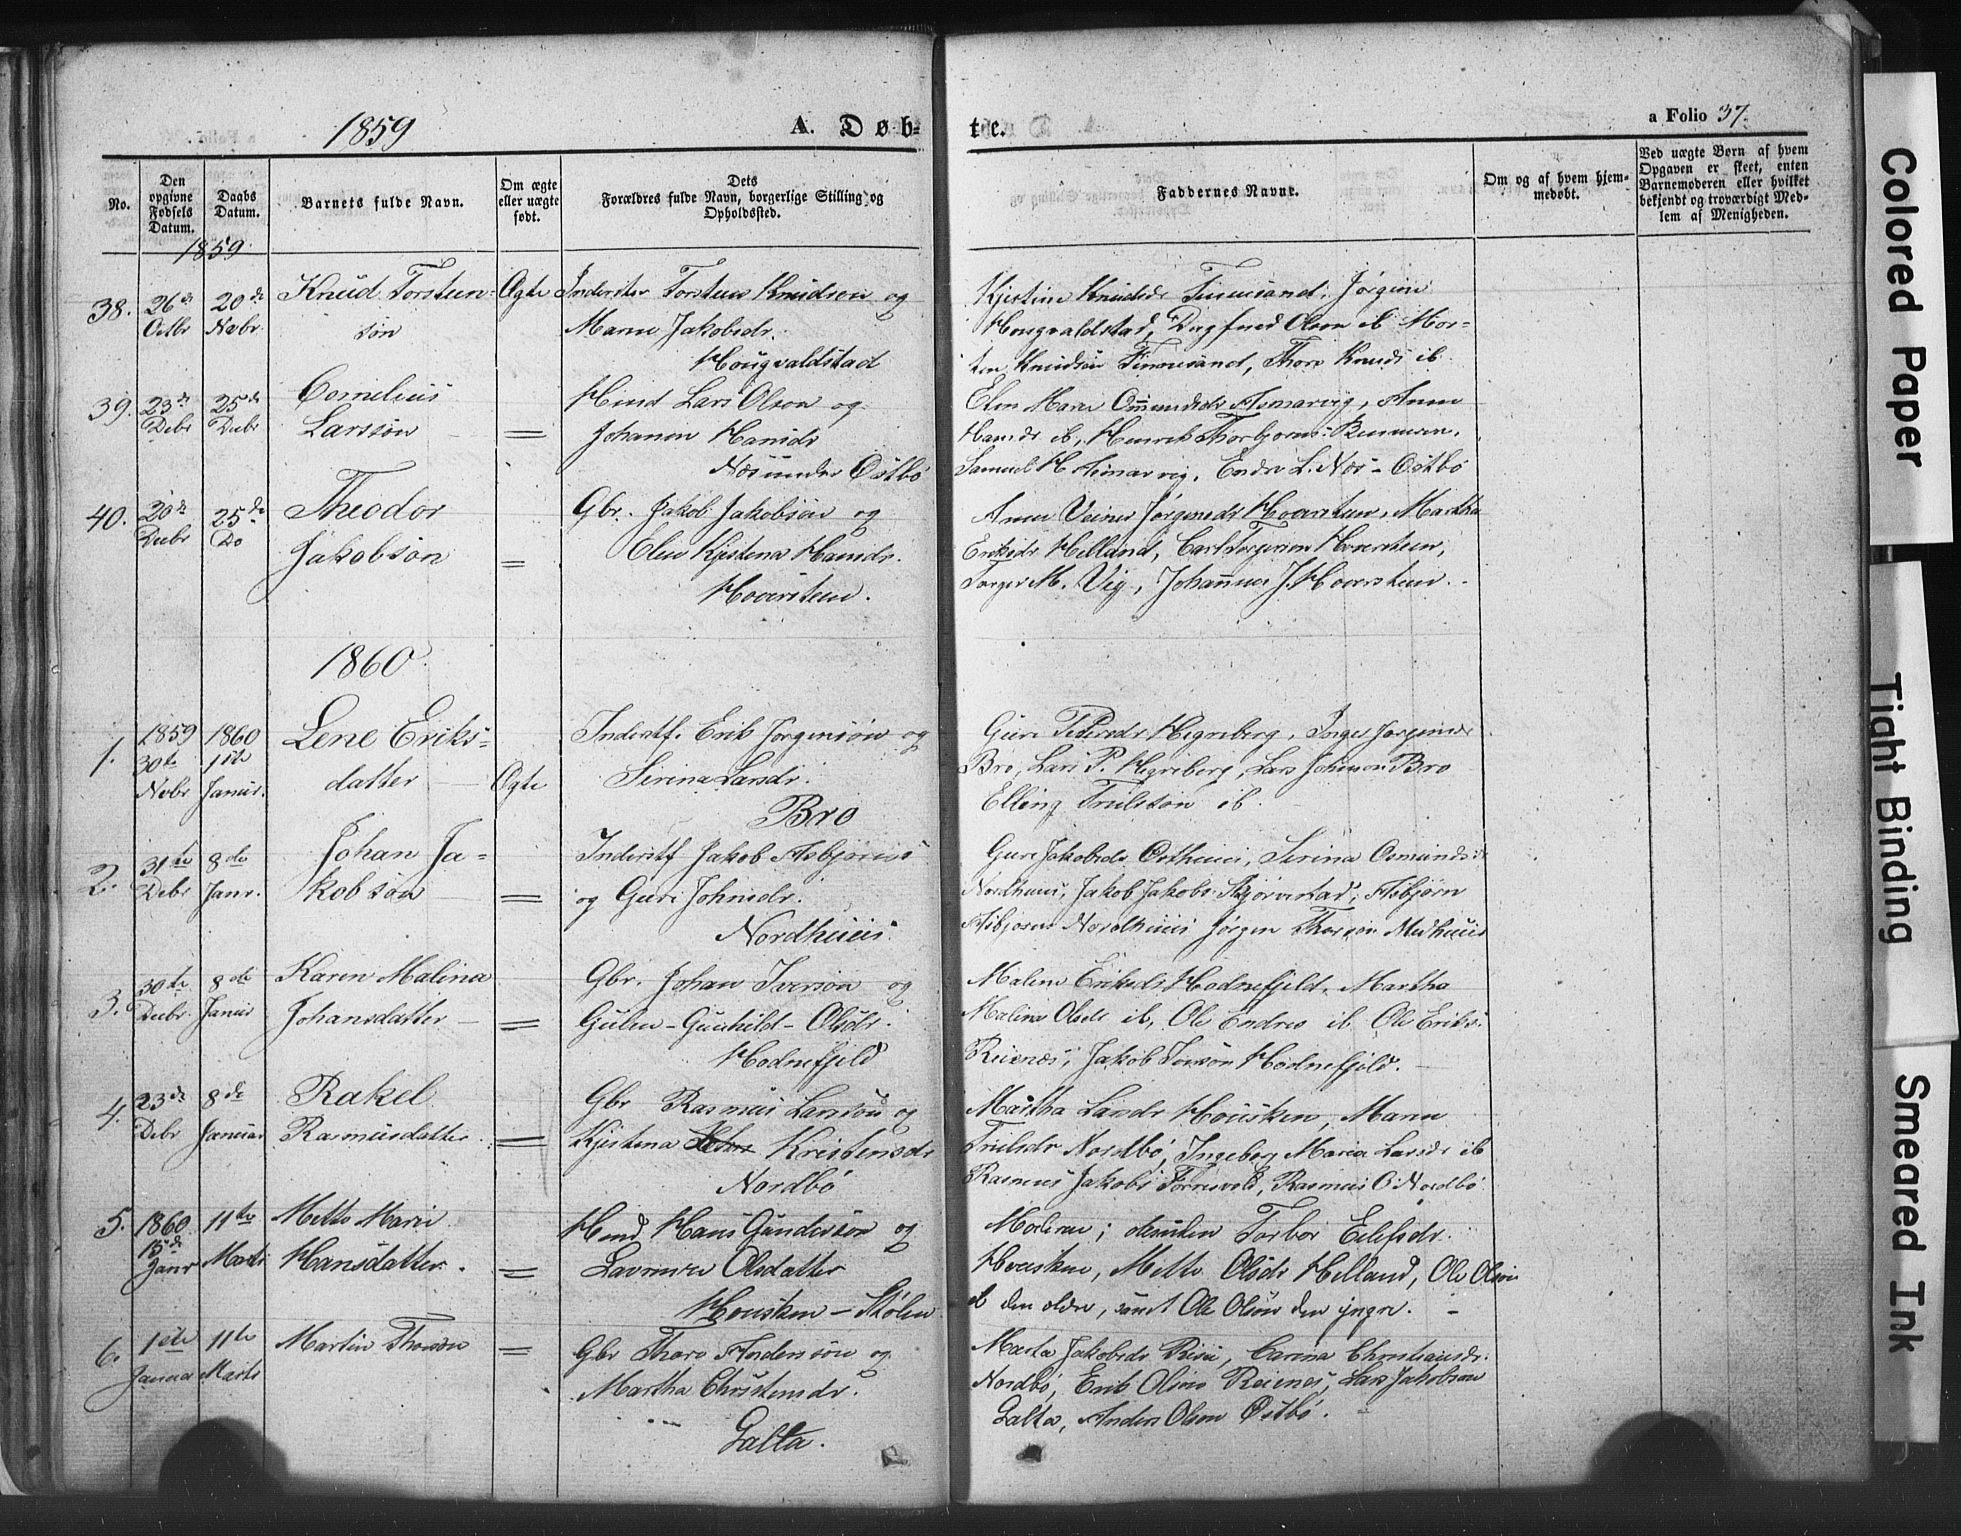 1859
A. Døb-
te.
a Folio 37.
No.
Den
opgivne
Fødsels
Datum.
Daabs
Datum.
Barnets fulde Navn.
Om ægte
eller uægte
født.
Dets
Forældres fulde Navn, borgerlige Stilling og
Opholdssted.
Faddernes Navne.
Om og af hvem hjem-
medøbt.
Ved uægte Børn af hvem
Opgaven er skeet, enten
Barnemoderen eller hvilket
bekjendt og troværdigt Med-
lem af Menigheden.
1859
38.
26de
Octbr
20de
Novbr.
Knud Torsten-
søn
Ogte
Inderster Torsten Knudsen og
Maren Jakobsdr.
Hougvaldstad
Kjestine Knudsdr Finnesand, Jørgine
Hougvaldstad, Dagfined Olsen ib Mor-
ten Knudsøn Finnesand, Thore Knuds ib.
39.
23de
Debr
25de
Debr
Cornelius
Larssøn
=
Hmd Lars Olson og
Johanna Hansdr
Næs under Østbø
Elen Maria Ommundsdr Asmarvig, Anna
Hansdr ib, Henrik Thorbjørns
Samuel H. Asmarvig, Endre L. Næs - Østbø
40.
20de
Debr
25de
Do
Theodor
Jakobsøn
=
Gbr. Jakob Jakobsøn og
Elen Kjestena Hansdr.
Hoverstein.
Anna Jørgensdr Hoverstein, Martha
Eriksdr Helland, Carl Torgersen Hoverstein,
Torger M. Vig, Johannes J. Hoverstein.
1860.
1.
1859
30te
Novbr
1860
1ste
Janur.
Lene Eriks-
datter
Ogte
Inderstf. Erik Jørgensøn og
Serina Larsdr.
Bro
Guri Pedersdr Hegreberg, Inger Jørgensdr
Bro, Lars P. Hegreberg, Lars Johnson Bro
Elling Truulssøn ib.
2.
31te
Debr
8de
Janr.
Johan Ja-
kobsøn
=
Inderstf Jakob Asbjørns
og Guri Johnsdr.
Nordhuus.
Guri Jakobsdr Østhuus, Serina Osmundsdr
Nordhuus, Jakob Jakobs Skjørvestad, Asbjørn
Asbjørns Nordhuus Jørgen Thorsøn Medhuus
3.
30te
Debr.
8de
Janur
Karen Malina
Johansdatter
=
Gbr. Johan Iversøn og
Gulen-Gunhild-Olsdr.
Hodnefjeld
Malene Eriksdr Hodnefjeld, Martha
Malina Olsdr ib, Ole Endres ib Ole Eriks.
Reienæs, Jakob Iversøn Hodnefjeld.
4.
23de
Debr
8de
Januar
Rakel
Rasmusdatter
=
Gbr Rasmus Larssøn og
Kjestena Kristensdr
Nordbø
Martha Larsdr Housken, Maren
Truulsdr Nordbø, Ingeborg Maria Larsdr ib
Rasmus Jakobs Førresvold, Rasmus O. Nordbø
5.
1860
15de
Janr
11te
Marts
Mette Marie
Hansdatter.
=
Hmd Hans Gundersøn og
Lavrense Olsdatter
Housken - Skolen
Moderen; desuden Torbor Eilefsdr.
Housken, Mette Olsdr Helland, Ole Olsøn
ib den ældre, samt Ole Olsøn den yngre.
6.
1ste
Januar
11te
Marts
Martin Thorsøn
=
Gbr Thore Andersøn og
Martha Christensdr.
Galta.
Marta Jakobsdr , Carina Christiansdr.
Nordbø, Erik Olsøn Reienes, Lars Jakobsøn
Galta, Anders Olsøn Østbø.
Colored Paper
Tight Binding
Smeared Ink